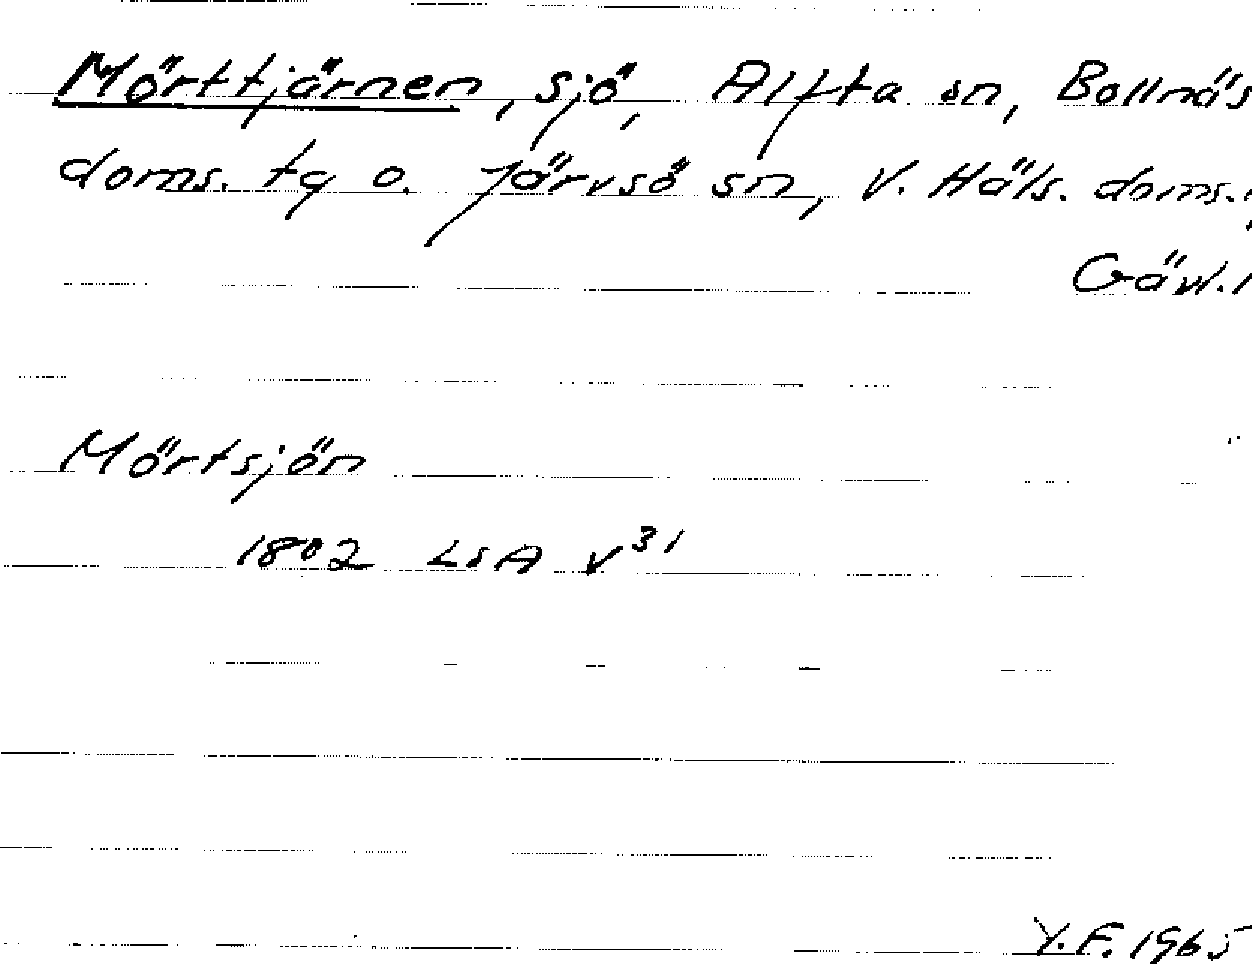 Mörttjärnen, sjö, Alfta sn, Bollnäs
doms. tg o. Järvsö sn, V. Häls. doms.,
Gävl. l
Mörtsjön
1802 LSA V31
Y.F. 1965